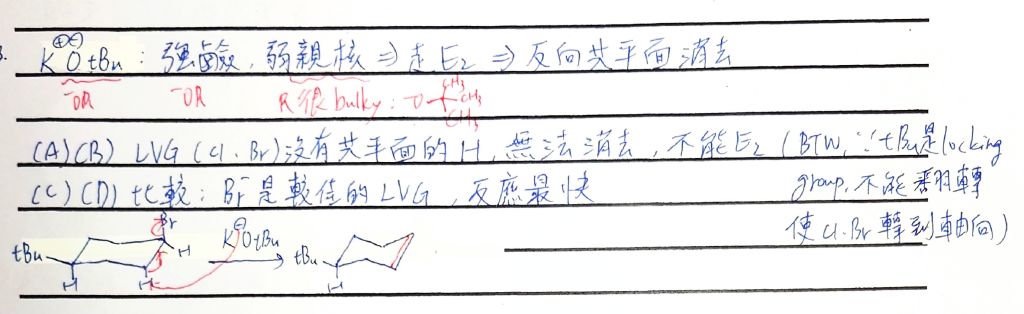 3.
K⊕ ⊖OtBu : 強鹼, 弱親核 ⇒ 走E2 ⇒ 反向共平面消去
⁻OR ⁻OR R很bulky : ⁻O CH3 CH3 CH3
(A)(B) LVG (Cl、Br)沒有共平面的H, 無法消去, 不能E2 (BTW, ∵tBu是locking
group, 不能翻轉
使Cl、Br轉到軸向)
(C)(D) 比較 : Br⁻是較佳的LVG, 反應最快
tBu H H Br H K⊖OtBu tBu H